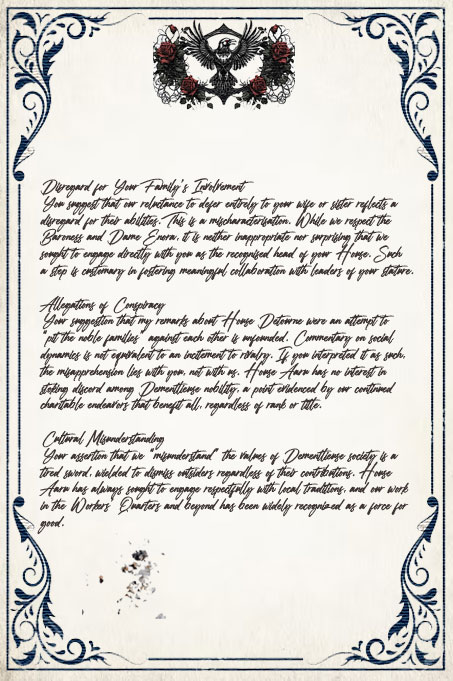 Disregard for Your Family's Involvement
You suggest that our reluctance to defer entirely to your wife or sister reflects a
disregard for their abilities. This is a mischaracterisation. While we respect the
Baroness and Dame Enora, it is neither inappropriate nor surprising that we
sought to engage directly with you as the recognised head of your House. Such
a step is customary in fostering meaningful collaboration with leaders of your stature.
Allegations of Conspiracy
Your suggestion that my remarks about House Detourne were an attempt to
"pit the noble families" against each other is unfounded. Commentary on social
dynamics is not equivalent to an incitement to rivalry. If you interpreted it as such,
the misapprehension lies with you, not with us. House Aaru has no interest in
stoking discord among Dementlieuse nobility, a point evidenced by our continued
charitable endeavors that benefit all, regardless of rank or title.
Cultural Misunderstanding
Your assertion that we "misunderstand" the values of Dementlieuse society is a
tired sword, wielded to dismiss outsiders regardless of their contributions. House
Aaru has always sought to engage respectfully with local traditions, and our work
in the Workers' Quarters and beyond has been widely recognized as a force for
good.